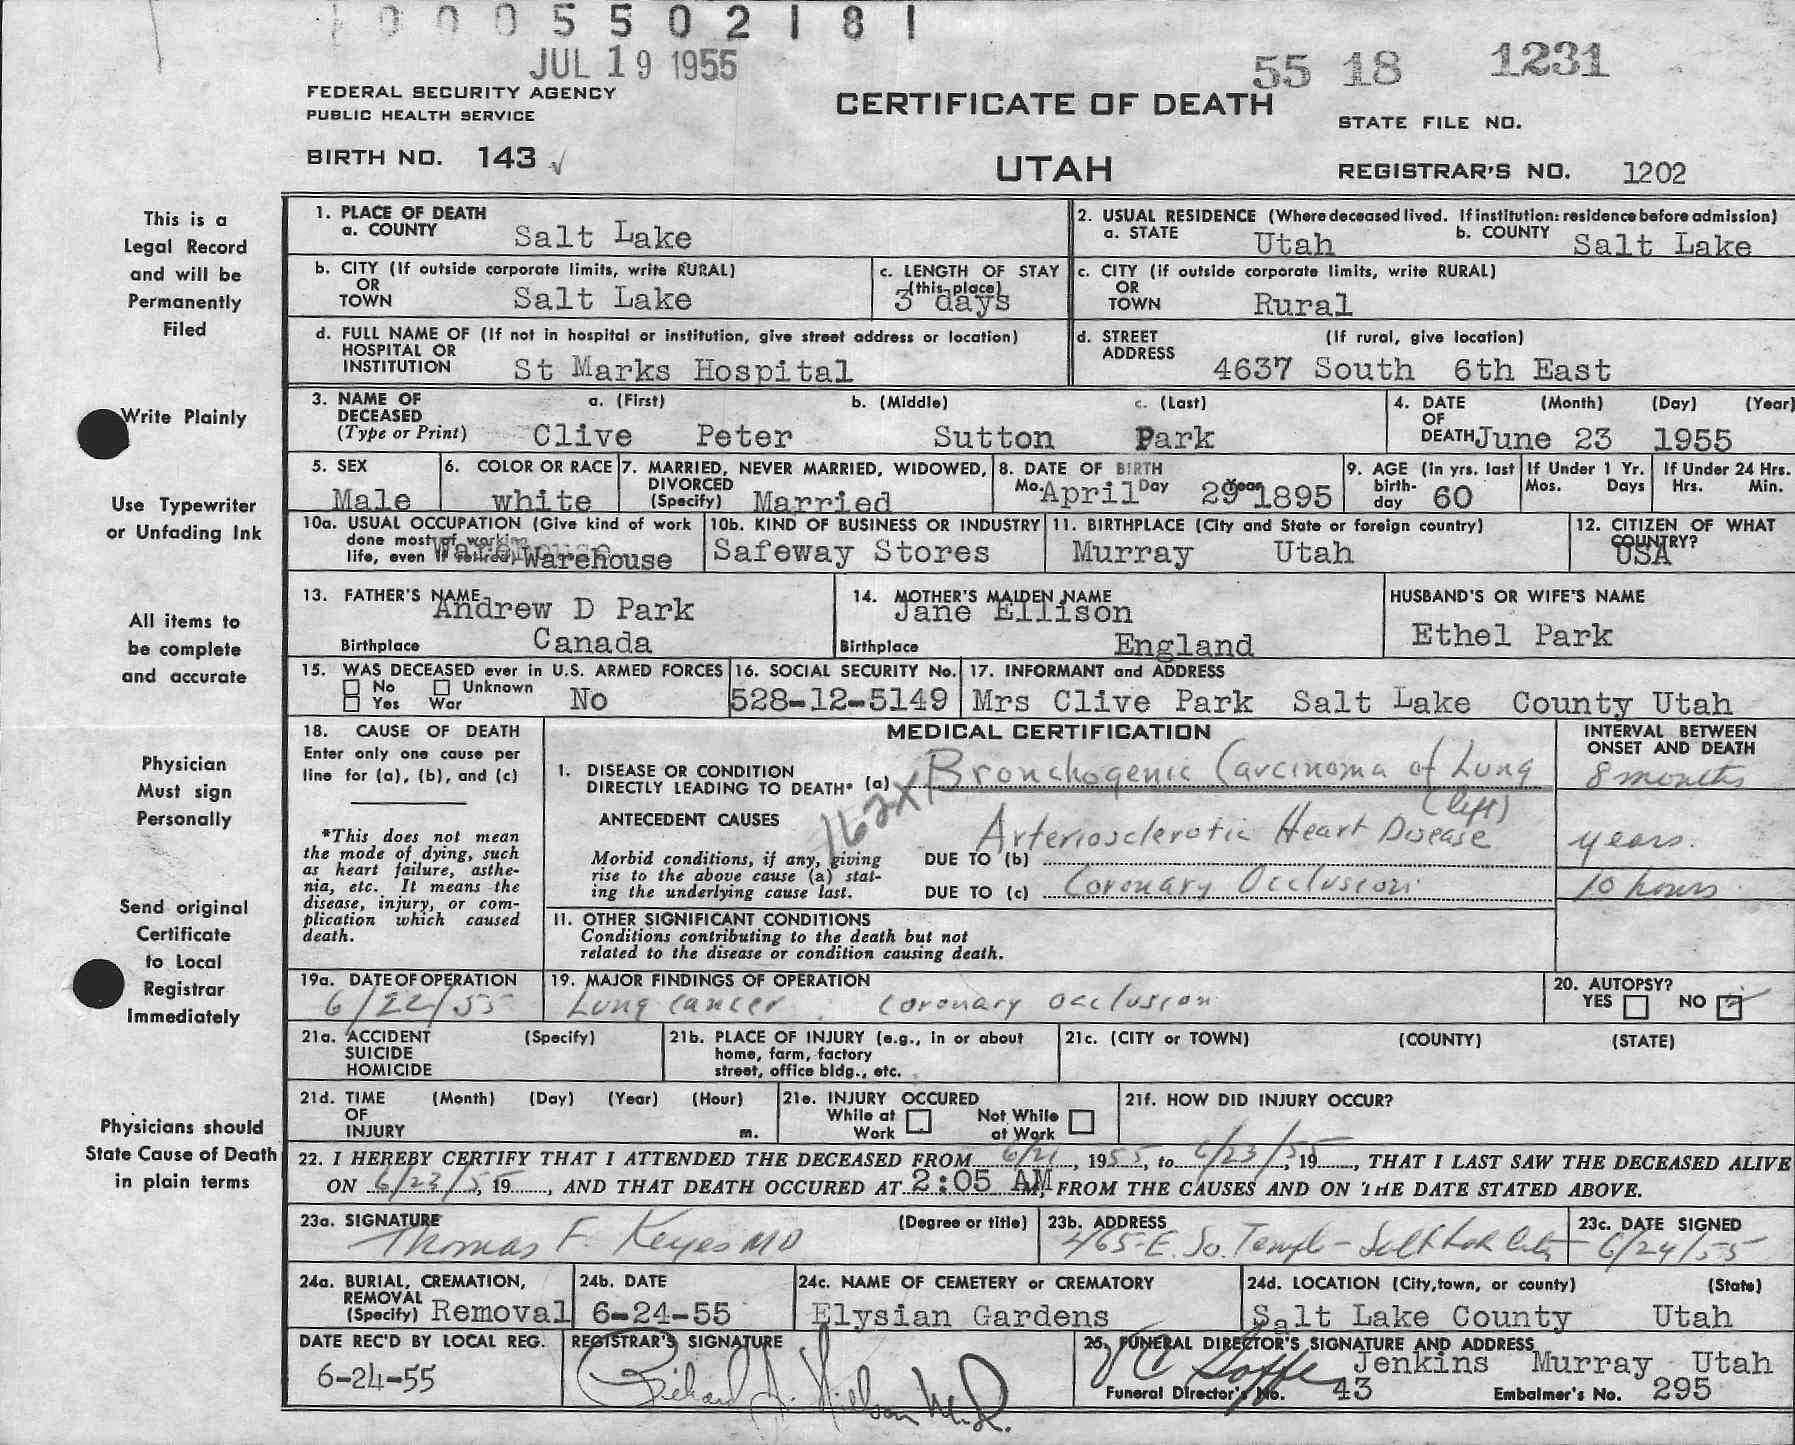 0 0 0 5 5 0 2 1 8 1
JUL 19 1955
55 18 1231
FEDERAL SECURITY AGENCY
PUBLIC HEALTH SERVICE
CERTIFICATE OF DEATH
STATE FILE NO.
BIRTH NO. 143
UTAH
REGISTRAR'S NO. 1202
This is a
Legal Record
and will be
Permanently
Filed
Write Plainly
Use Typewriter
or Unfading Ink
All items to
be complete
and accurate
Physician
Must sign
Personally
Send original
Certificate
to Local
Registrar
Immediately
Physicians should
State Cause of Death
in plain terms
1. PLACE OF DEATH
a. COUNTY Salt Lake
2. USUAL RESIDENCE (Where deceased lived. If institution: residence before admission)
a. STATE Utah b. COUNTY Salt Lake
b. CITY (If outside corporate limits, write RURAL)
OR
TOWN Salt Lake
c. LENGTH OF STAY
(this place)
3 days
c. CITY (if outside corporate limits, write RURAL)
OR
TOWN Rural
d. FULL NAME OF (If not in hospital or institution, give street address or location)
HOSPITAL OR
INSTITUTION St Marks Hospital
d. STREET (If rural, give location)
ADDRESS 4637 South 6th East
3. NAME OF a. (First) b. (Middle) c. (Last)
DECEASED
(Type or Print) Clive Peter Sutton Park
4. DATE (Month) (Day) (Year)
OF
DEATH June 23 1955
5. SEX
Male
6. COLOR OR RACE
white
7. MARRIED, NEVER MARRIED, WIDOWED,
DIVORCED
(Specify) Married
8. DATE OF BIRTH
Mo. April Day 29 Year 1895
9. AGE (In yrs. last
birth-
day 60
If Under 1 Yr.
Mos. Days
If Under 24 Hrs.
Hrs. Min.
10a. USUAL OCCUPATION (Give kind of work
done most of working
life, even if retired) Warehouse
10b. KIND OF BUSINESS OR INDUSTRY
Safeway Stores
11. BIRTHPLACE (City and State or foreign country)
Murray Utah
12. CITIZEN OF WHAT
COUNTRY?
USA
13. FATHER'S NAME
Andrew D Park
Birthplace Canada
14. MOTHER'S MAIDEN NAME
Jane Ellison
Birthplace England
HUSBAND'S OR WIFE'S NAME
Ethel Park
15. WAS DECEASED ever in U.S. ARMED FORCES
No Unknown
Yes War No
16. SOCIAL SECURITY No.
528-12-5149
17. INFORMANT and ADDRESS
Mrs Clive Park Salt Lake County Utah
18. CAUSE OF DEATH
Enter only one cause per
line for (a), (b), and (c)
*This does not mean
the mode of dying, such
as heart failure, asthe-
nia, etc. It means the
disease, injury, or com-
plication which caused
death.
MEDICAL CERTIFICATION
INTERVAL BETWEEN
ONSET AND DEATH
1. DISEASE OR CONDITION
DIRECTLY LEADING TO DEATH* (a) Bronchogenic Carcinoma of Lung 8 months
(left)
162X
ANTECEDENT CAUSES
Morbid conditions, if any, giving
rise to the above cause (a) stat-
ing the underlying cause last.
DUE TO (b) Arteriosclerotic Heart Disease years.
DUE TO (c) Coronary Occlusion 10 hours
II. OTHER SIGNIFICANT CONDITIONS
Conditions contributing to the death but not
related to the disease or condition causing death.
19a. DATE OF OPERATION
6/22/55
19. MAJOR FINDINGS OF OPERATION
Lung cancer coronary occlusion
20. AUTOPSY?
YES NO
21a. ACCIDENT (Specify)
SUICIDE
HOMICIDE
21b. PLACE OF INJURY (e.g., in or about
home, farm, factory
street, office bldg., etc.
21c. (CITY or TOWN) (COUNTY) (STATE)
21d. TIME (Month) (Day) (Year) (Hour)
OF
INJURY m.
21e. INJURY OCCURED
While at Not While
Work at Work
21f. HOW DID INJURY OCCUR?
22. I HEREBY CERTIFY THAT I ATTENDED THE DECEASED FROM 6/21, 1955, to 6/23/55, 19, THAT I LAST SAW THE DECEASED ALIVE
ON 6/23/55, 19, AND THAT DEATH OCCURED AT 2:05 AM, FROM THE CAUSES AND ON THE DATE STATED ABOVE.
23a. SIGNATURE (Degree or title)
Thomas F. Keyes MD
23b. ADDRESS
465 E. So. Temple - Salt Lake City
23c. DATE SIGNED
6/24/55
24a. BURIAL, CREMATION,
REMOVAL
(Specify) Removal
24b. DATE
6-24-55
24c. NAME OF CEMETERY or CREMATORY
Elysian Gardens
24d. LOCATION (City, town, or county) (State)
Salt Lake County Utah
DATE REC'D BY LOCAL REG.
6-24-55
REGISTRAR'S SIGNATURE
Richard
25. FUNERAL DIRECTOR'S SIGNATURE AND ADDRESS
Jenkins Murray Utah
Funeral Director's No. 43 Embalmer's No. 295